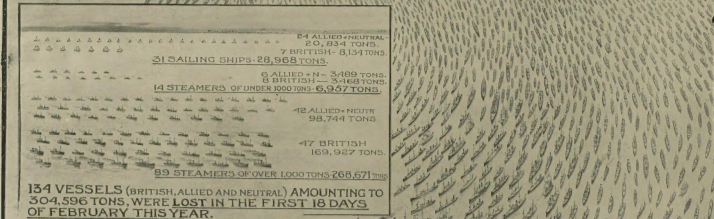 24 ALLIED & NEUTRAL
20,834 TONS.
7 BRITISH - 8,134 TONS.
31 SAILING SHIPS - 28,968 TONS.
6 ALLIED & N - 3,489 TONS.
8 BRITISH — 3,468 TONS.
14 STEAMERS OF UNDER 1000 TONS - 6,957 TONS.
42 ALLIED & NEUTR
98,744 TONS.
47 BRITISH
169,927 TONS.
89 STEAMERS OF OVER 1,000 TONS 268,671 TONS
134 VESSELS (BRITISH, ALLIED AND NEUTRAL) AMOUNTING TO
304,596 TONS, WERE LOST IN THE FIRST 18 DAYS
OF FEBRUARY THIS YEAR.